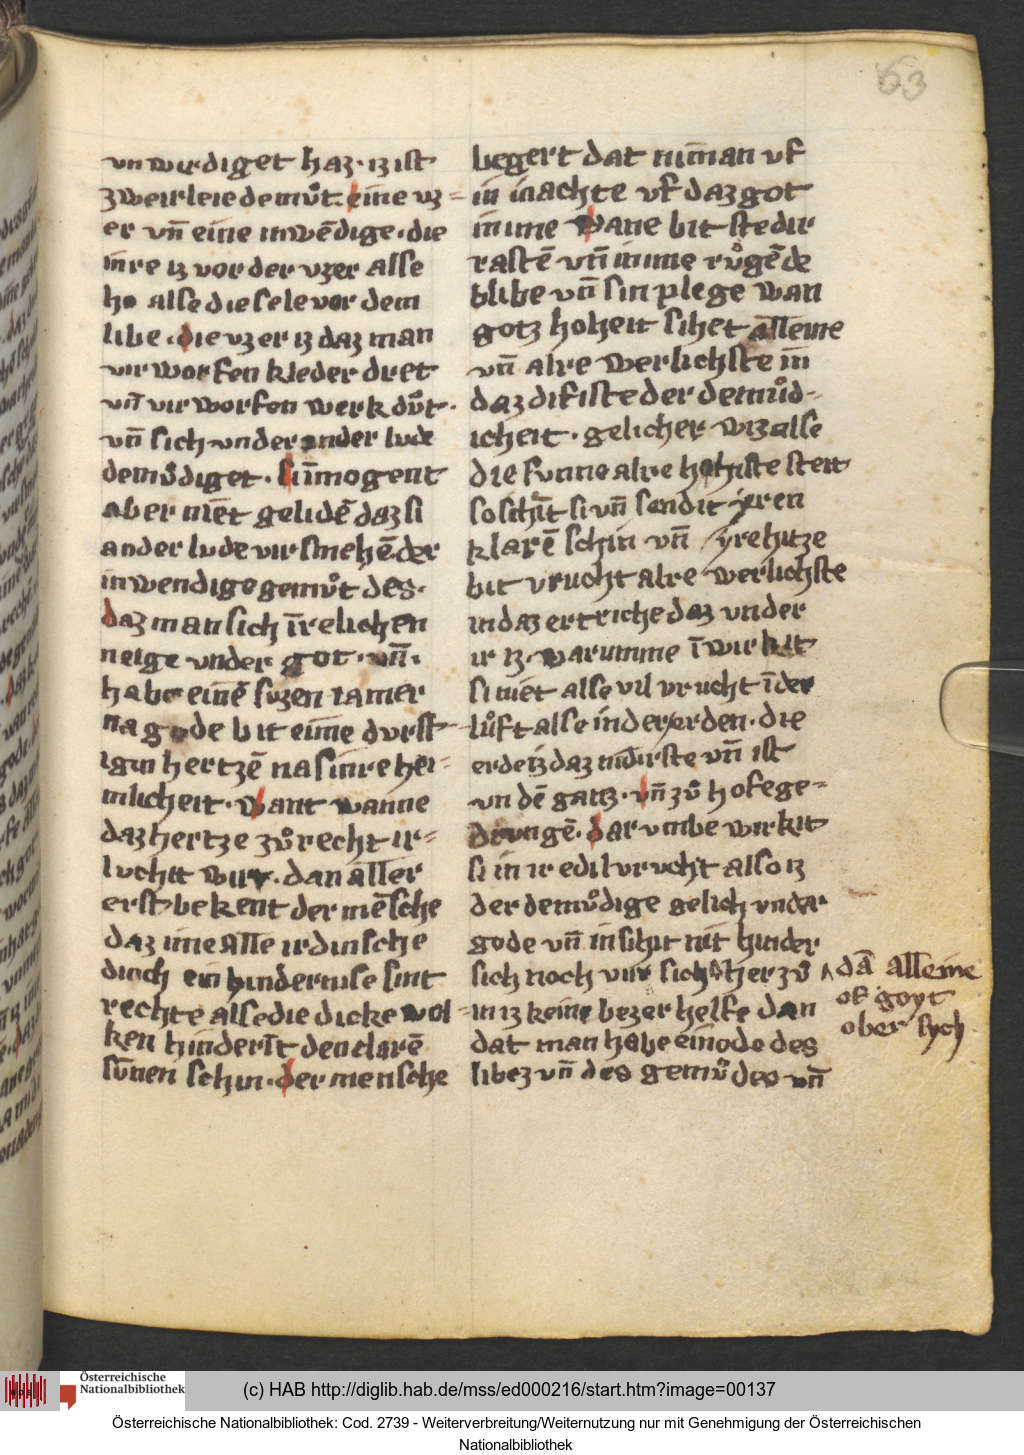 63
vn wirdiget haz · iz ist
zweirleie demuͦt · eine vz=
er vn̄ eine inwēdige · die
inre iz vor der vzer alse
ho alse die sele vor dem
libe · die vzer iz daz man
vir worfen kleder dret
vn̄ vir worfen werk duͦt ·
vn̄ sich vnder ander lude
demuͦdiget · si īmogent
aber niēt gelidē daz si
ander lude vir smehē der
inwendige gemuͦt des ·
daz man sich īrelichen
neige vnder got · vn̄ ·
habe einē suzen iamer
na gode bit eime durst
igin hertzē na sinre hei=
mlicheit · want wanne
daz hertze zuͦ recht ir=
lucht wirt · dan aller
erst bekent der mēsche
daz ime alle irdinsche
dinch ein hindernise sint
rechte alse die dicke wol=
ken hinderīt den clarē
sūnen schin · der mensche
begert dat niman vf
in inachte vf daz got
in ime wane bit stedir
rastē vn̄ in ime ruͦgēde
blibe vn̄ sin plege wan
gotz hoheit sihet alleine
vn̄ alre werlichste in
daz difiste der demuͦd=
icheit · gelicher wiz alse
die sunne alre hohiste steit
so schīt si vn̄ sendit yren
klarē schin vn̄ yre hitze
bit vrucht alre werlichste
in daz ertriche daz vnder
ir iz · warumme īwirkit
si niet alse vil vrucht ī der
luͦft alse in der erden · die
erde iz daz nidirste vn̄ ist
vn dē ganz · vn̄ zuͦ hofe ge=
drungē · dar vmbe wirkit
si in ir edil vrucht also iz
der demuͦdige gelich vnder
gode vn̄ in sihit nit hinder
sich noch vur sich · her zuͦ
in iz keine bezer helfe dan
dat man habe einode des
libez vn̄ des gemuͦdes vn̄
dā alleine
of goyt
ober sych
Österreichische
Nationalbibliothek
(c) HAB http://diglib.hab.de/mss/ed000216/start.htm?image=00137
Österreichische Nationalbibliothek: Cod. 2739 - Weiterverbreitung/Weiternutzung nur mit Genehmigung der Österreichischen
Nationalbibliothek